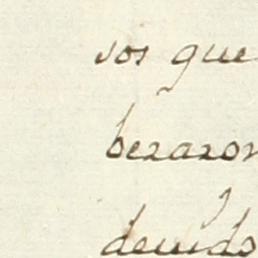 sos que
bezaron
devido